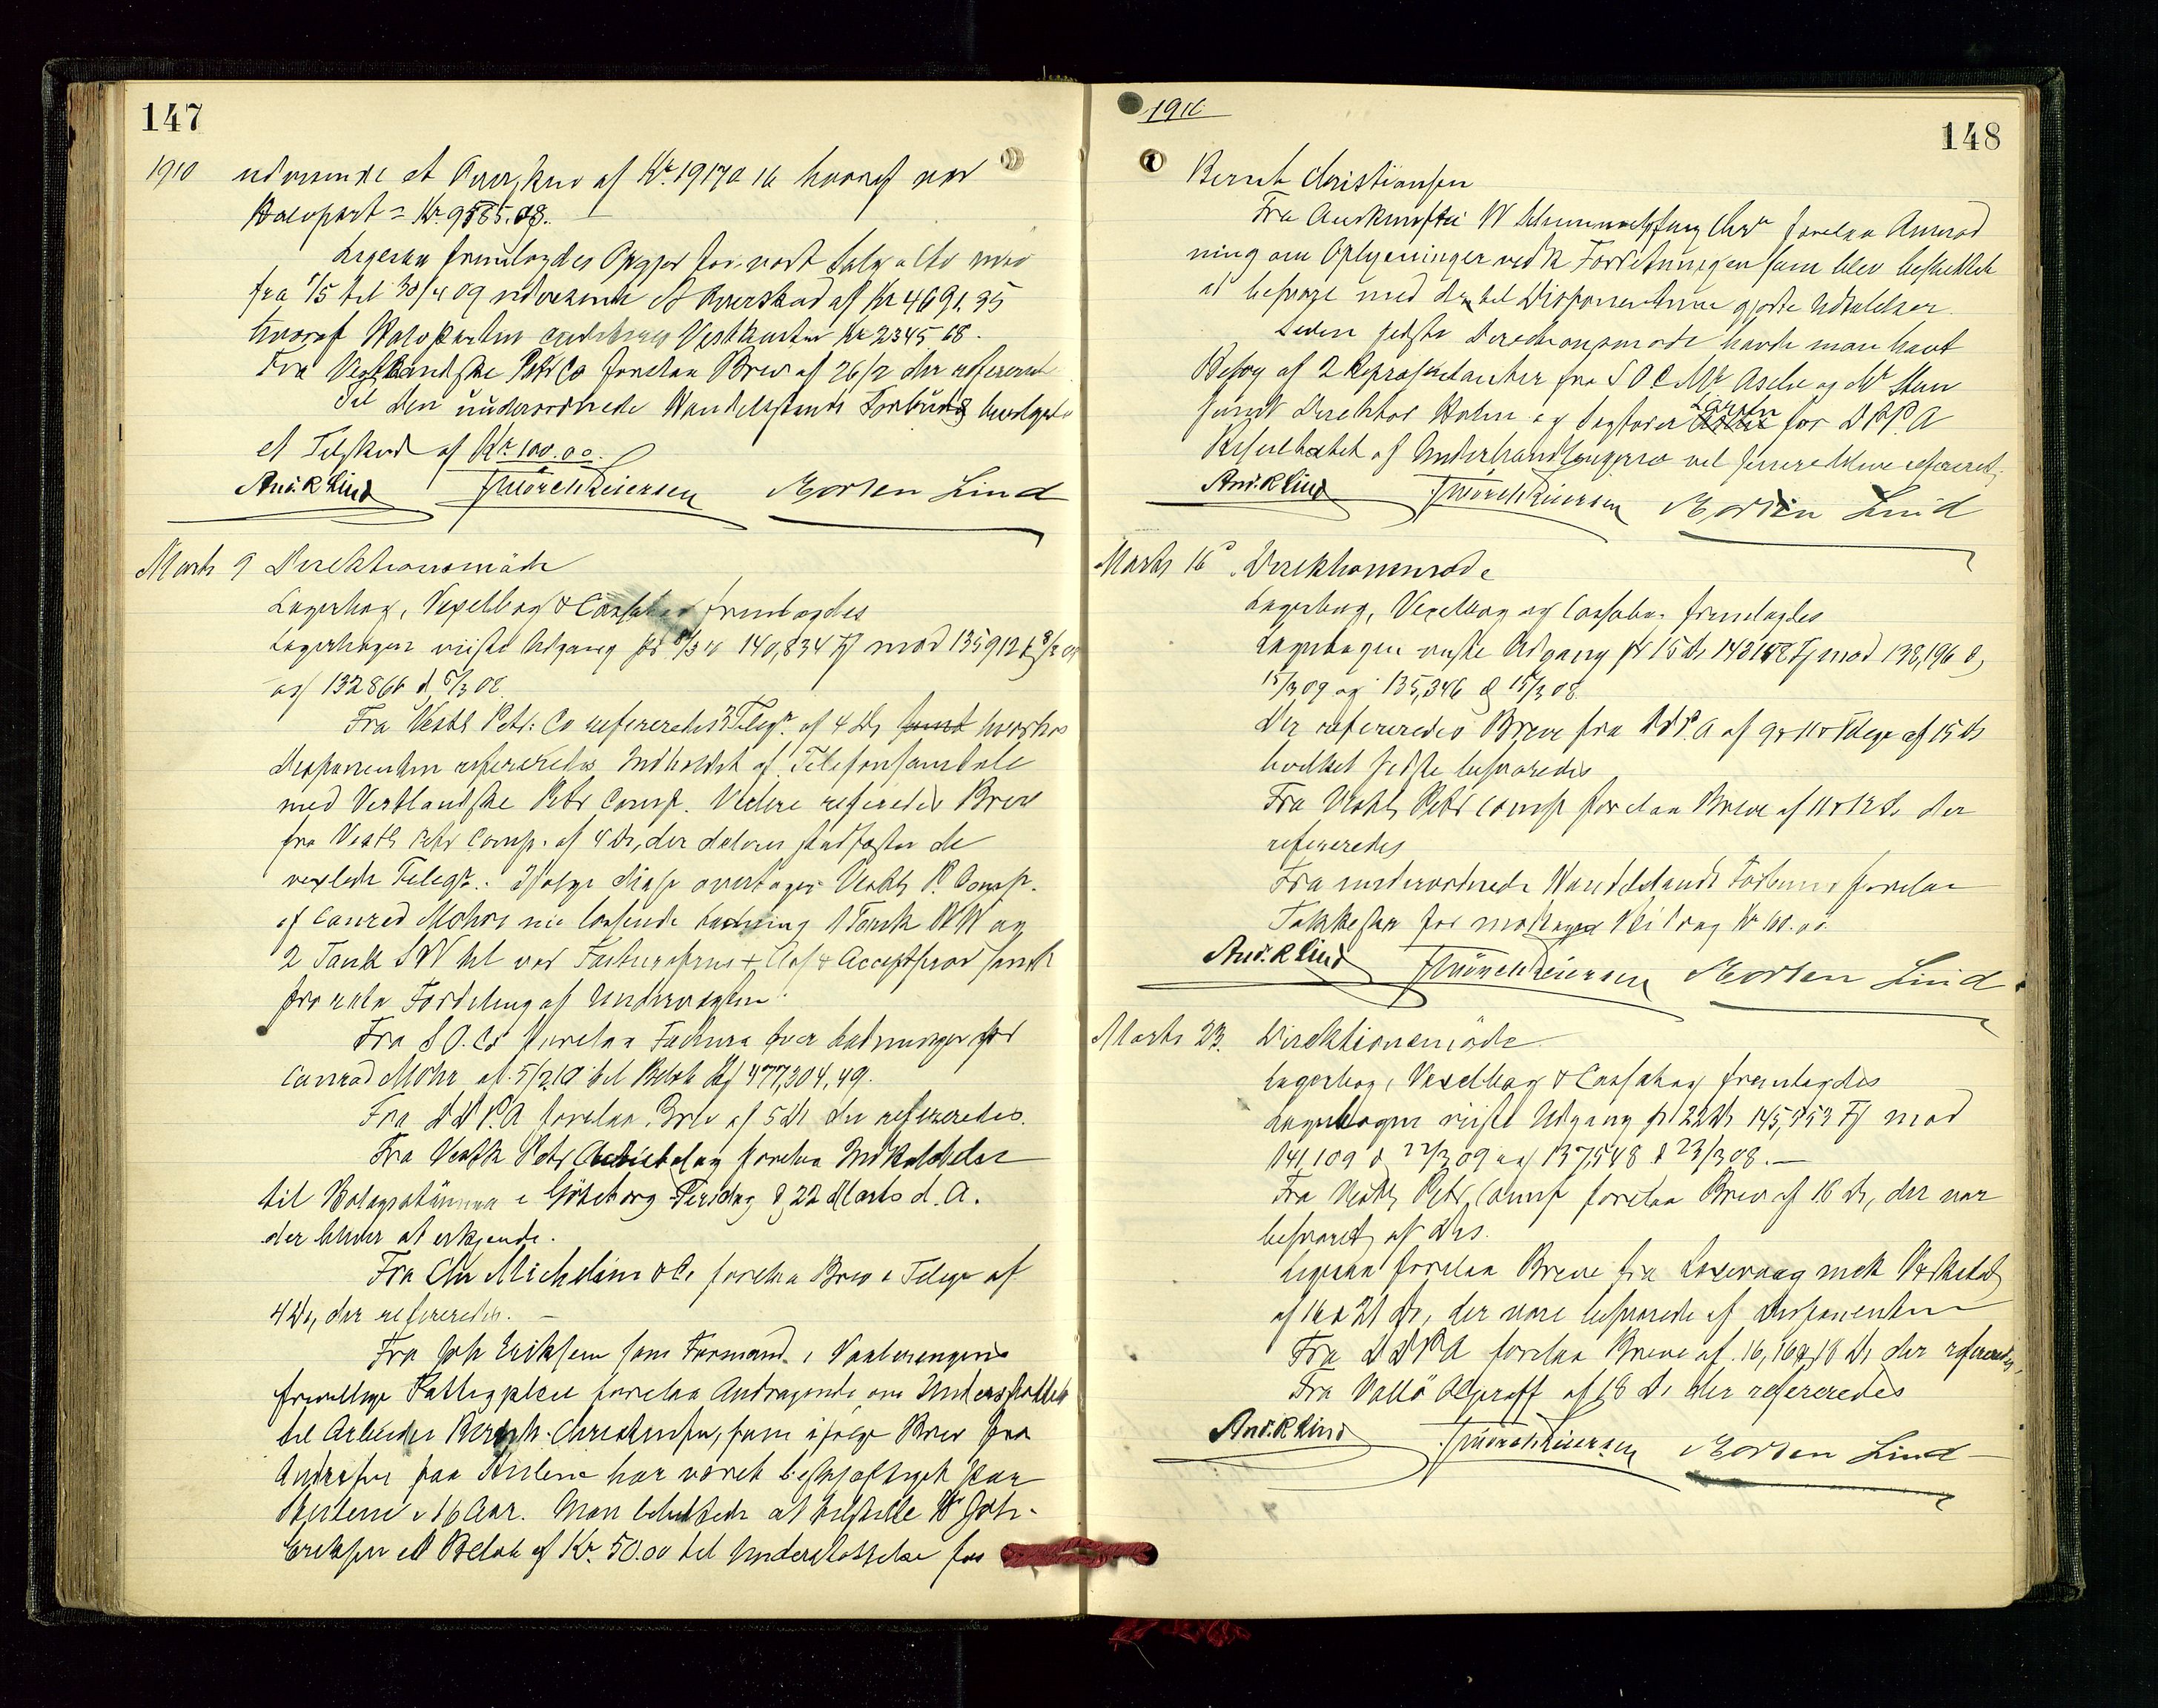 147
1910 udvisende et Overskud af Kr. 19170.16 hvoraf vor
Halvpart = Kr. 9585.08.
Ligesaa fremlagdes Opgjør for vort Salg
fra 1/5 til 30/4 09 udvisende et Overskud af Kr 4691.35
hvoraf Halvparten Vestkanten Kr 2345.68.
Fra Vestlandske Petr Co forelaa Brev af 26/2 der refereredes
Til den underordnede Handelsstands Forbund bevilgedes
et Tilskud af Kr. 100.00.
And. R Lind Mörch Reiersen Morten Lind
Marts 9 Direktionsmöde
Lagerbog, Vexelbog & Cassabog fremlagdes
Lagerbogen viiste Udgang pr 8/3 10 140,834 Fj mod 135912 8/3 09
og 132866 d 8/3 08.
Fra Vestl Petr: Co refereredes 3 Telegr. af 4 Ds hvorhos
Disponenten refererede Indholdet af Telefonsamtale
med Vestlandske Petr Comp. Videre referedes Brev
fra Vestl Petr Comp. af 4 Ds, der stadfæster de
vexlede Telegr. Ifølge disse overtager Vestl P. Comp.
af Conrad Mohrs nu lossende Ladning 1 Tank WW og
2 Tank SW til vor Fakturapris + Ass + Acceptprov samt
pro rata Fordeling af Undervægten.
Fra S.O. Co forelaa Factura over Ladningen pr
Conrad Mohr af 5/2 10 til Beløb 477,304,49.
Fra D D P. A forelaa Brev af 5 Ds der refereredes.
Fra Vestk Petr Aktiebolag forelaa Indkaldelse
til Bolagsstämma i Göteborg Tirsdag d 22 Marts d. A.
der bliver at erkjende.
Fra Chr Michelsen & Co forelaa Brev & Telegr af
4 Ds, der refereredes.
Fra Joh Eriksen som Formand i Vaalerengens
frivillige Fattigpleie forelaa Andragende om Understøttelse
til Arbeider Bernt Christiansen, som ifølge Brev fra
paa Steilene har været beskjæftiget paa
Steilene i 16 Aar. Man besluttede at tilstille Hr Joh.
Eriksen et Beløb af Kr. 50.00 til Understøttelse for
1910
148
Bernt Christiansen
Fra Auskunftei W Schimmelpfeng forelaa Anmod
ning om Oplysninger vedk Forretningen som blev besluttet
at besvare med de til Disponenterne gjorte Udtalelser.
Siden sidste Direktionsmøde havde man havt
Besøg af 2 Repræsentanter fra S O C Mr Asche og Mr
samt Direktør Holm og for D D P. A
Resultatet af Underhandlingerne vil senere blive refereret.
And. R Lind Mörch Reiersen Morten Lind
Marts 16 Direktionsmøde
Lagerbog, Vexelbog og Cassabog fremlagdes
Lagerbogen viste Udgang pr 15 Ds Fj mod 138,196 d
15/3 09 og 135,346 d 15/3 08.
Der refereredes Breve fra D D P. A af 9 & 11 & Telegr af 15 Ds
hvilket sidste besvaredes
Fra Vestl Petr Comp forelaa Breve af 11 & 12 Ds der
refereredes
Fra underordnede Handelstands Forbund forelaa
for modtaget Bidrag Kr 100.00.
And. R Lind Mörch Reiersen Morten Lind
Marts 23. Direktionsmöde
Lagerbog, Vexelbog & Cassabog fremlagdes
Lagerbogen viiste Udgang pr 22 Ds 145,953 Fj mod
141,109 d 22/3 09 og 137,548 d 23/3 08.
Fra Vestl Petr, Comp forelaa Brev af 16 Ds, der var
besvaret af Ds.
Ligesaa forelaa Breve fra Laxevaag mek Værksted
af 16 & 21 Ds, der vare besvarede af Disponenten
Fra D D P A forelaa Breve af 16, 16 & 18 Ds der refereredes.
Fra Vallö Oljeraff af 18 Ds der refereredes
And. R Lind Mörch Reiersen Morten Lind